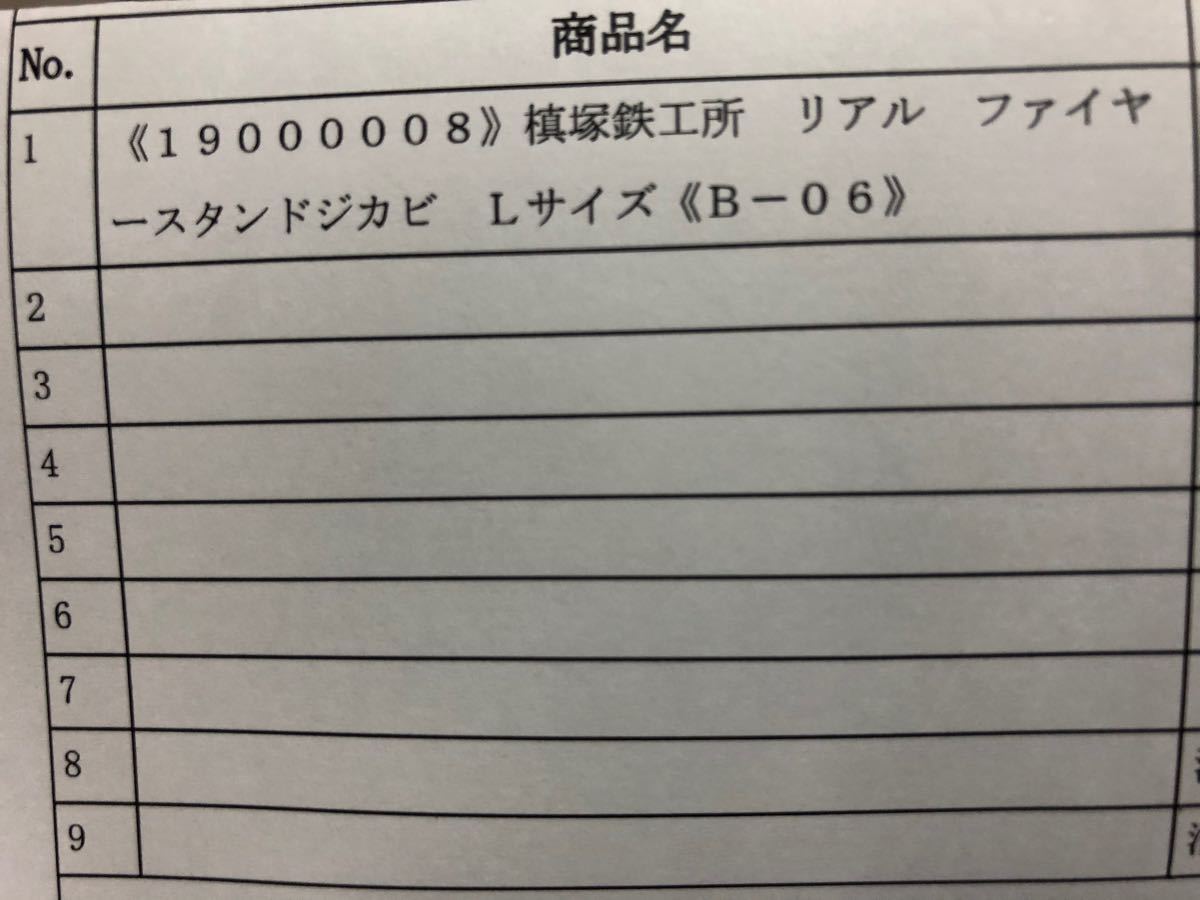 No. 商品名
1 《１９００００８》槙塚鉄工所　リアル　ファイヤ
ースタンドジカビ　Ｌサイズ《Ｂ－０６》
2
3
4
5
6
7
8
9